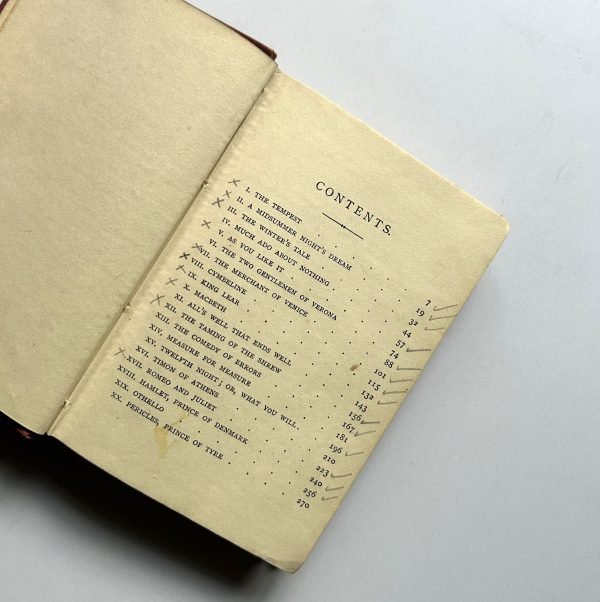 CONTENTS.
I. THE TEMPEST . . . . 7
II. A MIDSUMMER NIGHT'S DREAM . . . . 19
III. THE WINTER'S TALE . . . . 32
IV. MUCH ADO ABOUT NOTHING . . . . 44
V. AS YOU LIKE IT . . . . 57
VI. THE TWO GENTLEMEN OF VERONA . . . . 74
VII. THE MERCHANT OF VENICE . . . . 88
VIII. CYMBELINE . . . . 101
IX. KING LEAR . . . . 115
X. MACBETH . . . . 132
XI. ALL'S WELL THAT ENDS WELL . . . . 143
XII. THE TAMING OF THE SHREW . . . . 156
XIII. THE COMEDY OF ERRORS . . . . 167
XIV. MEASURE FOR MEASURE . . . . 181
XV. TWELFTH NIGHT; OR, WHAT YOU WILL. . . . 196
XVI. TIMON OF ATHENS . . . . 210
XVII. ROMEO AND JULIET . . . . 223
XVIII. HAMLET, PRINCE OF DENMARK . . . . 240
XIX. OTHELLO . . . . 256
XX. PERICLES, PRINCE OF TYRE . . . . 270